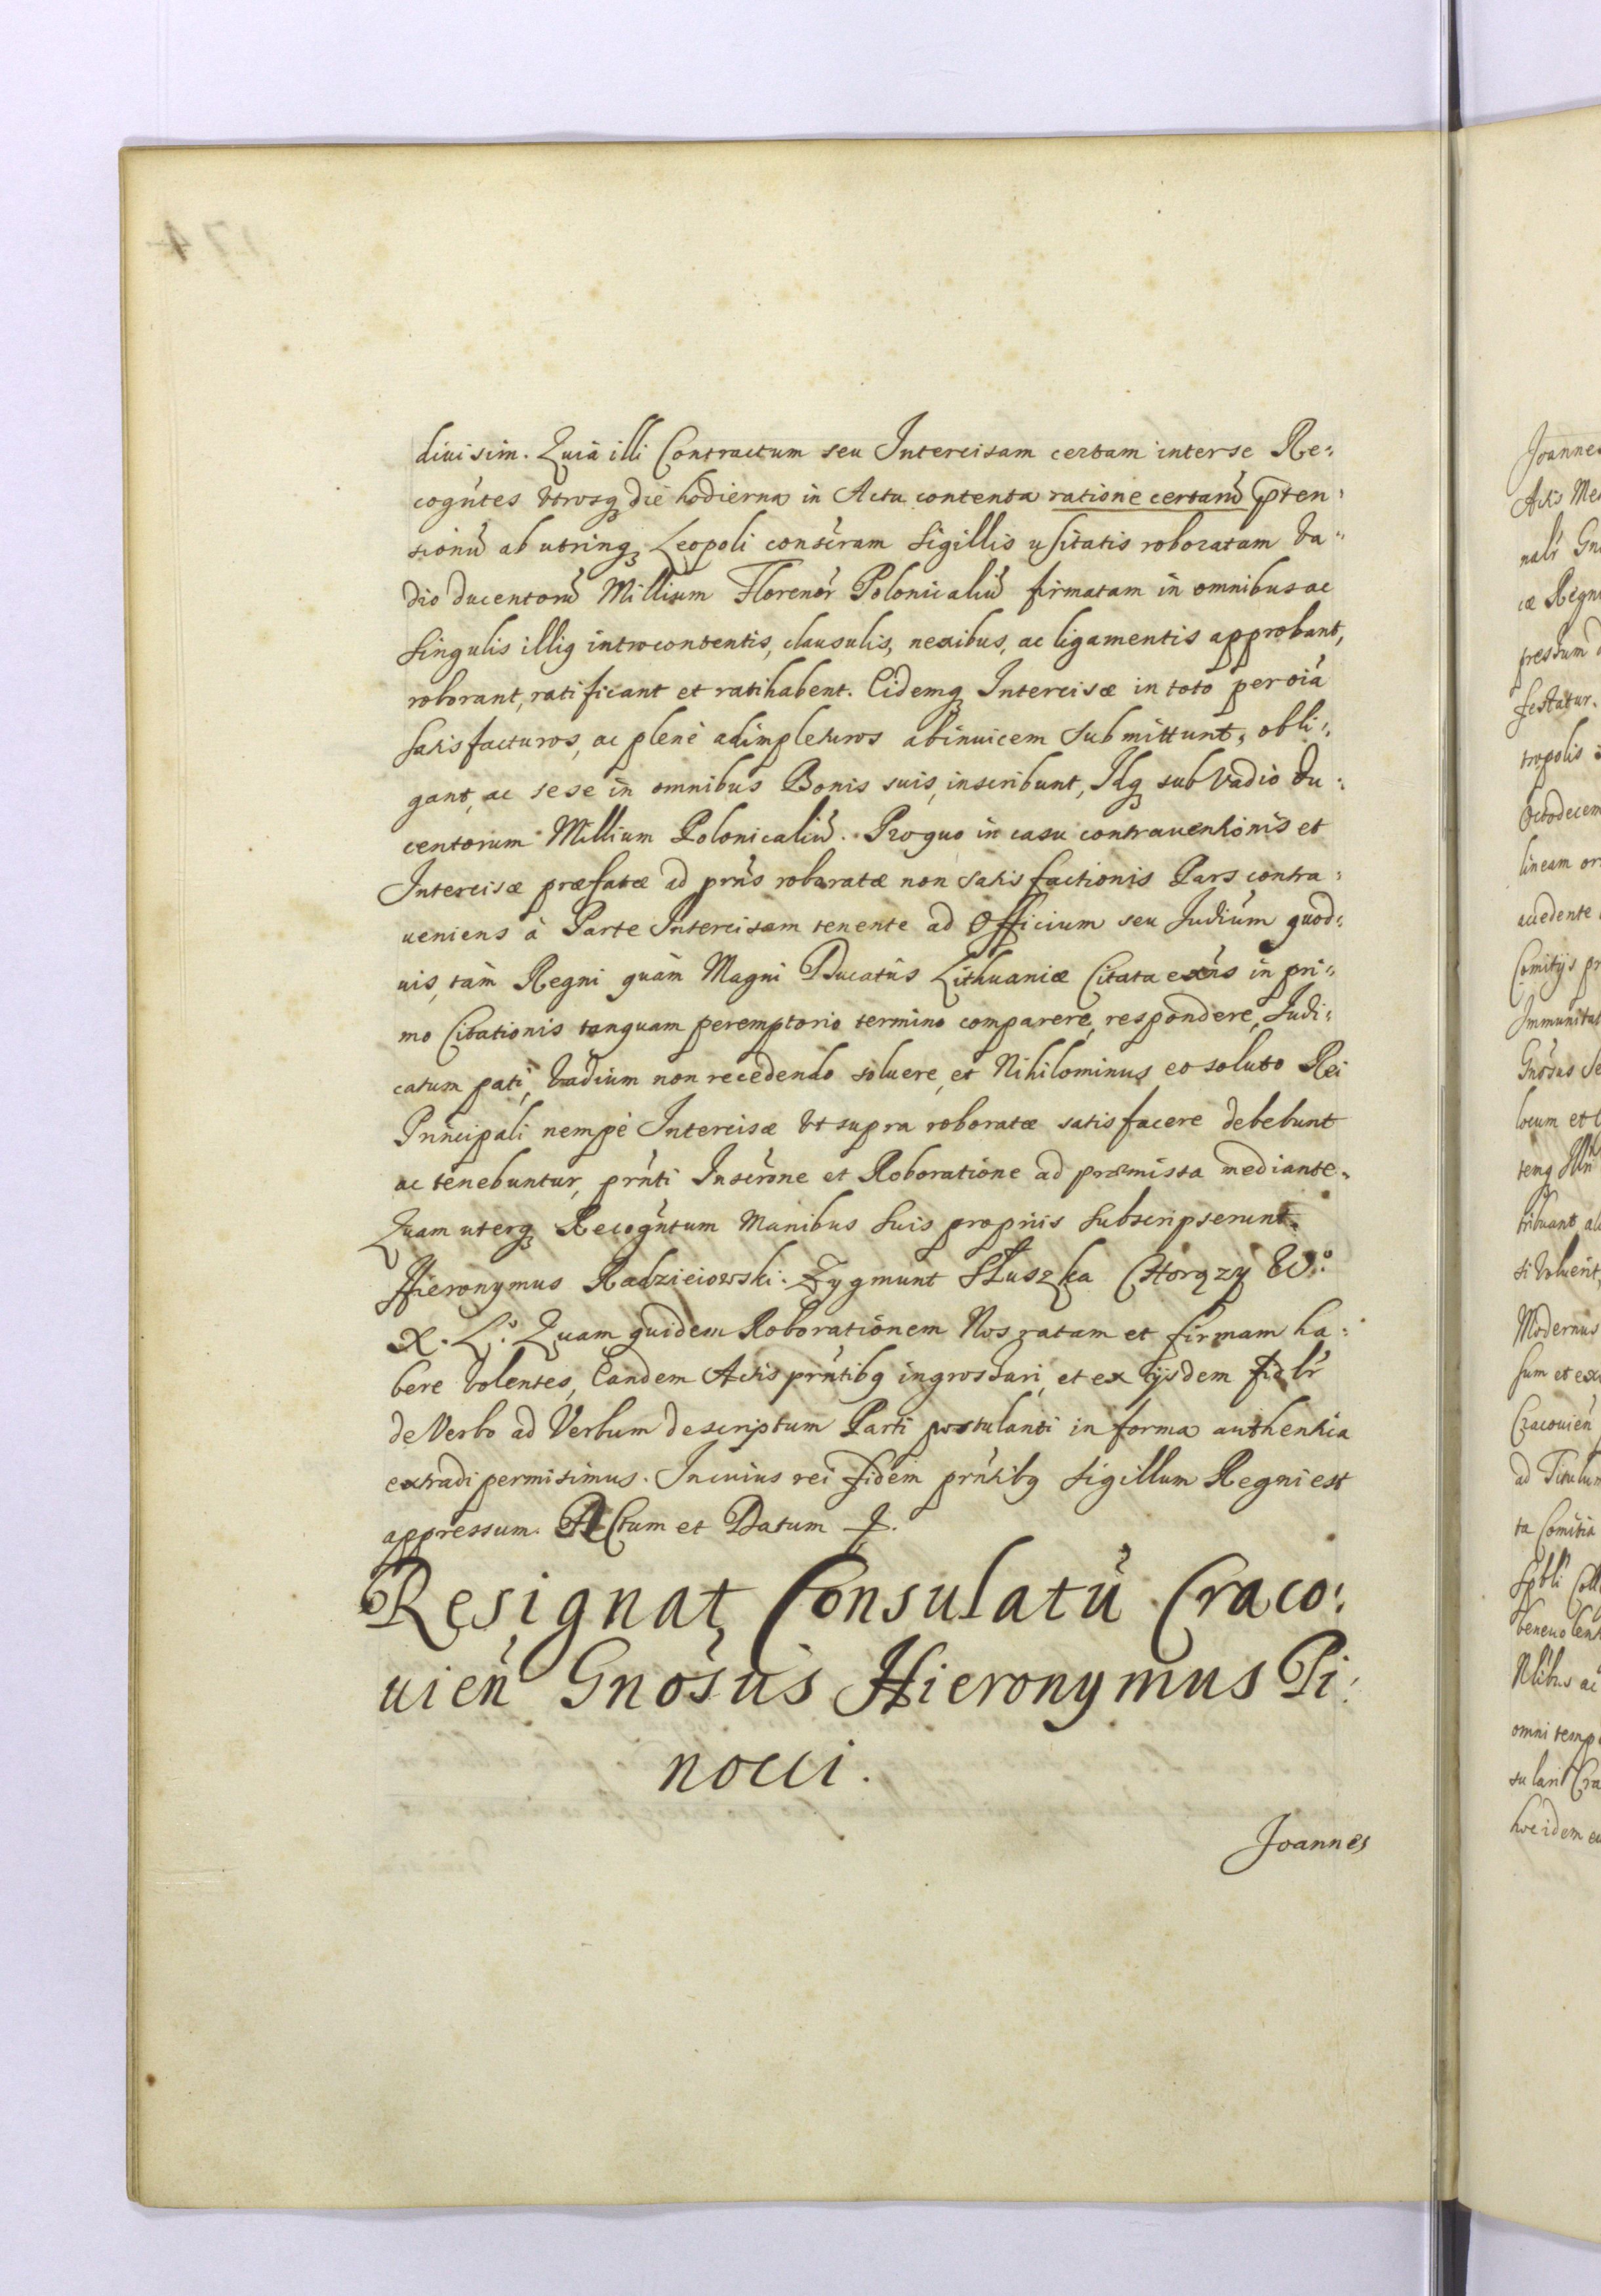 diuisim. Quia illi Contractum seu Intercisam certam interse Re:
cogñtes vtrosq; die hodierna in Actu contenta ratione certarũ p̃ten:
sionũ ab utrinq; Leopoli conscr̃am Sigillis usitatis roboratam Va:
dio ducentorũ Millium Florenor̃ Polonicaliũ firmatam in omnibus ac
singulis illiq introcontentis, clausulis, nexibus, ac ligamentis approbant,
roborant, ratificant et ratihabent. Eidemq; Intercisæ in toto per oĩa
satisfacturos, ac plenè adimpleturos abinuicem submittunt, obli:
gant, ac sese in omnibus Bonis suis, inscribunt, Idq; sub Vadio du:
centorum Millium Polonicaliũ. Pro quo in casu contrauentionis et
Intercisæ præfatæ ad prñs roboratæ non satisfactionis Pars contra:
ueniens à Parte Intercisam tenente ad Officium seu Judiũm quod:
uis, tàm Regni quàm Magni Ducatũs Lithuaniæ Citata exñs in pri:
mo Citationis tanquam peremptorio termino comparere, respondere, Judi:
catum pati, Vadium non recedendo soluere, et Nihilominus eo soluto Rei
Principali nempè Intercisæ vt supra roboratæ satisfacere debebunt
ac tenebuntur, prñti Inscr̃one et Roboratione ad præmissa mediante.
Quam uterq; Recogñtum Manibus suis propriis subscripserunt.
Hieronymus Radzieiowski. Zygmunt Słuszka Chorązy W.º
X. L.º Quam quidem Roborationem Nos ratam et firmam ha:
bere volentes, Eandem Actis prñtibq ingrossari, et ex ijsdem fidlr̃
de Verbo ad Verbum descriptum Parti postulanti in forma authentica
extradi permisimus. In cuius rei fidem prñtibq Sigillum Regni est
appressum. Actum et Datum
Resignat Consulatũ Craco:
uieñ Gnõsus Hieronymus Pi:
nocci.
Joannes
Joannes
Actis
nalr̃
æ Regni
pressum
festatur.
tropolis
Octodecem
lineam
accedente
Comitijs
Immunitat
Gnõsus
locum et
tenq
tribuant
si voluerit,
Modernus
sum et
Cracouieñ
ad Titulum
ta Comitia
beneuolent
omni temp
hoc idem